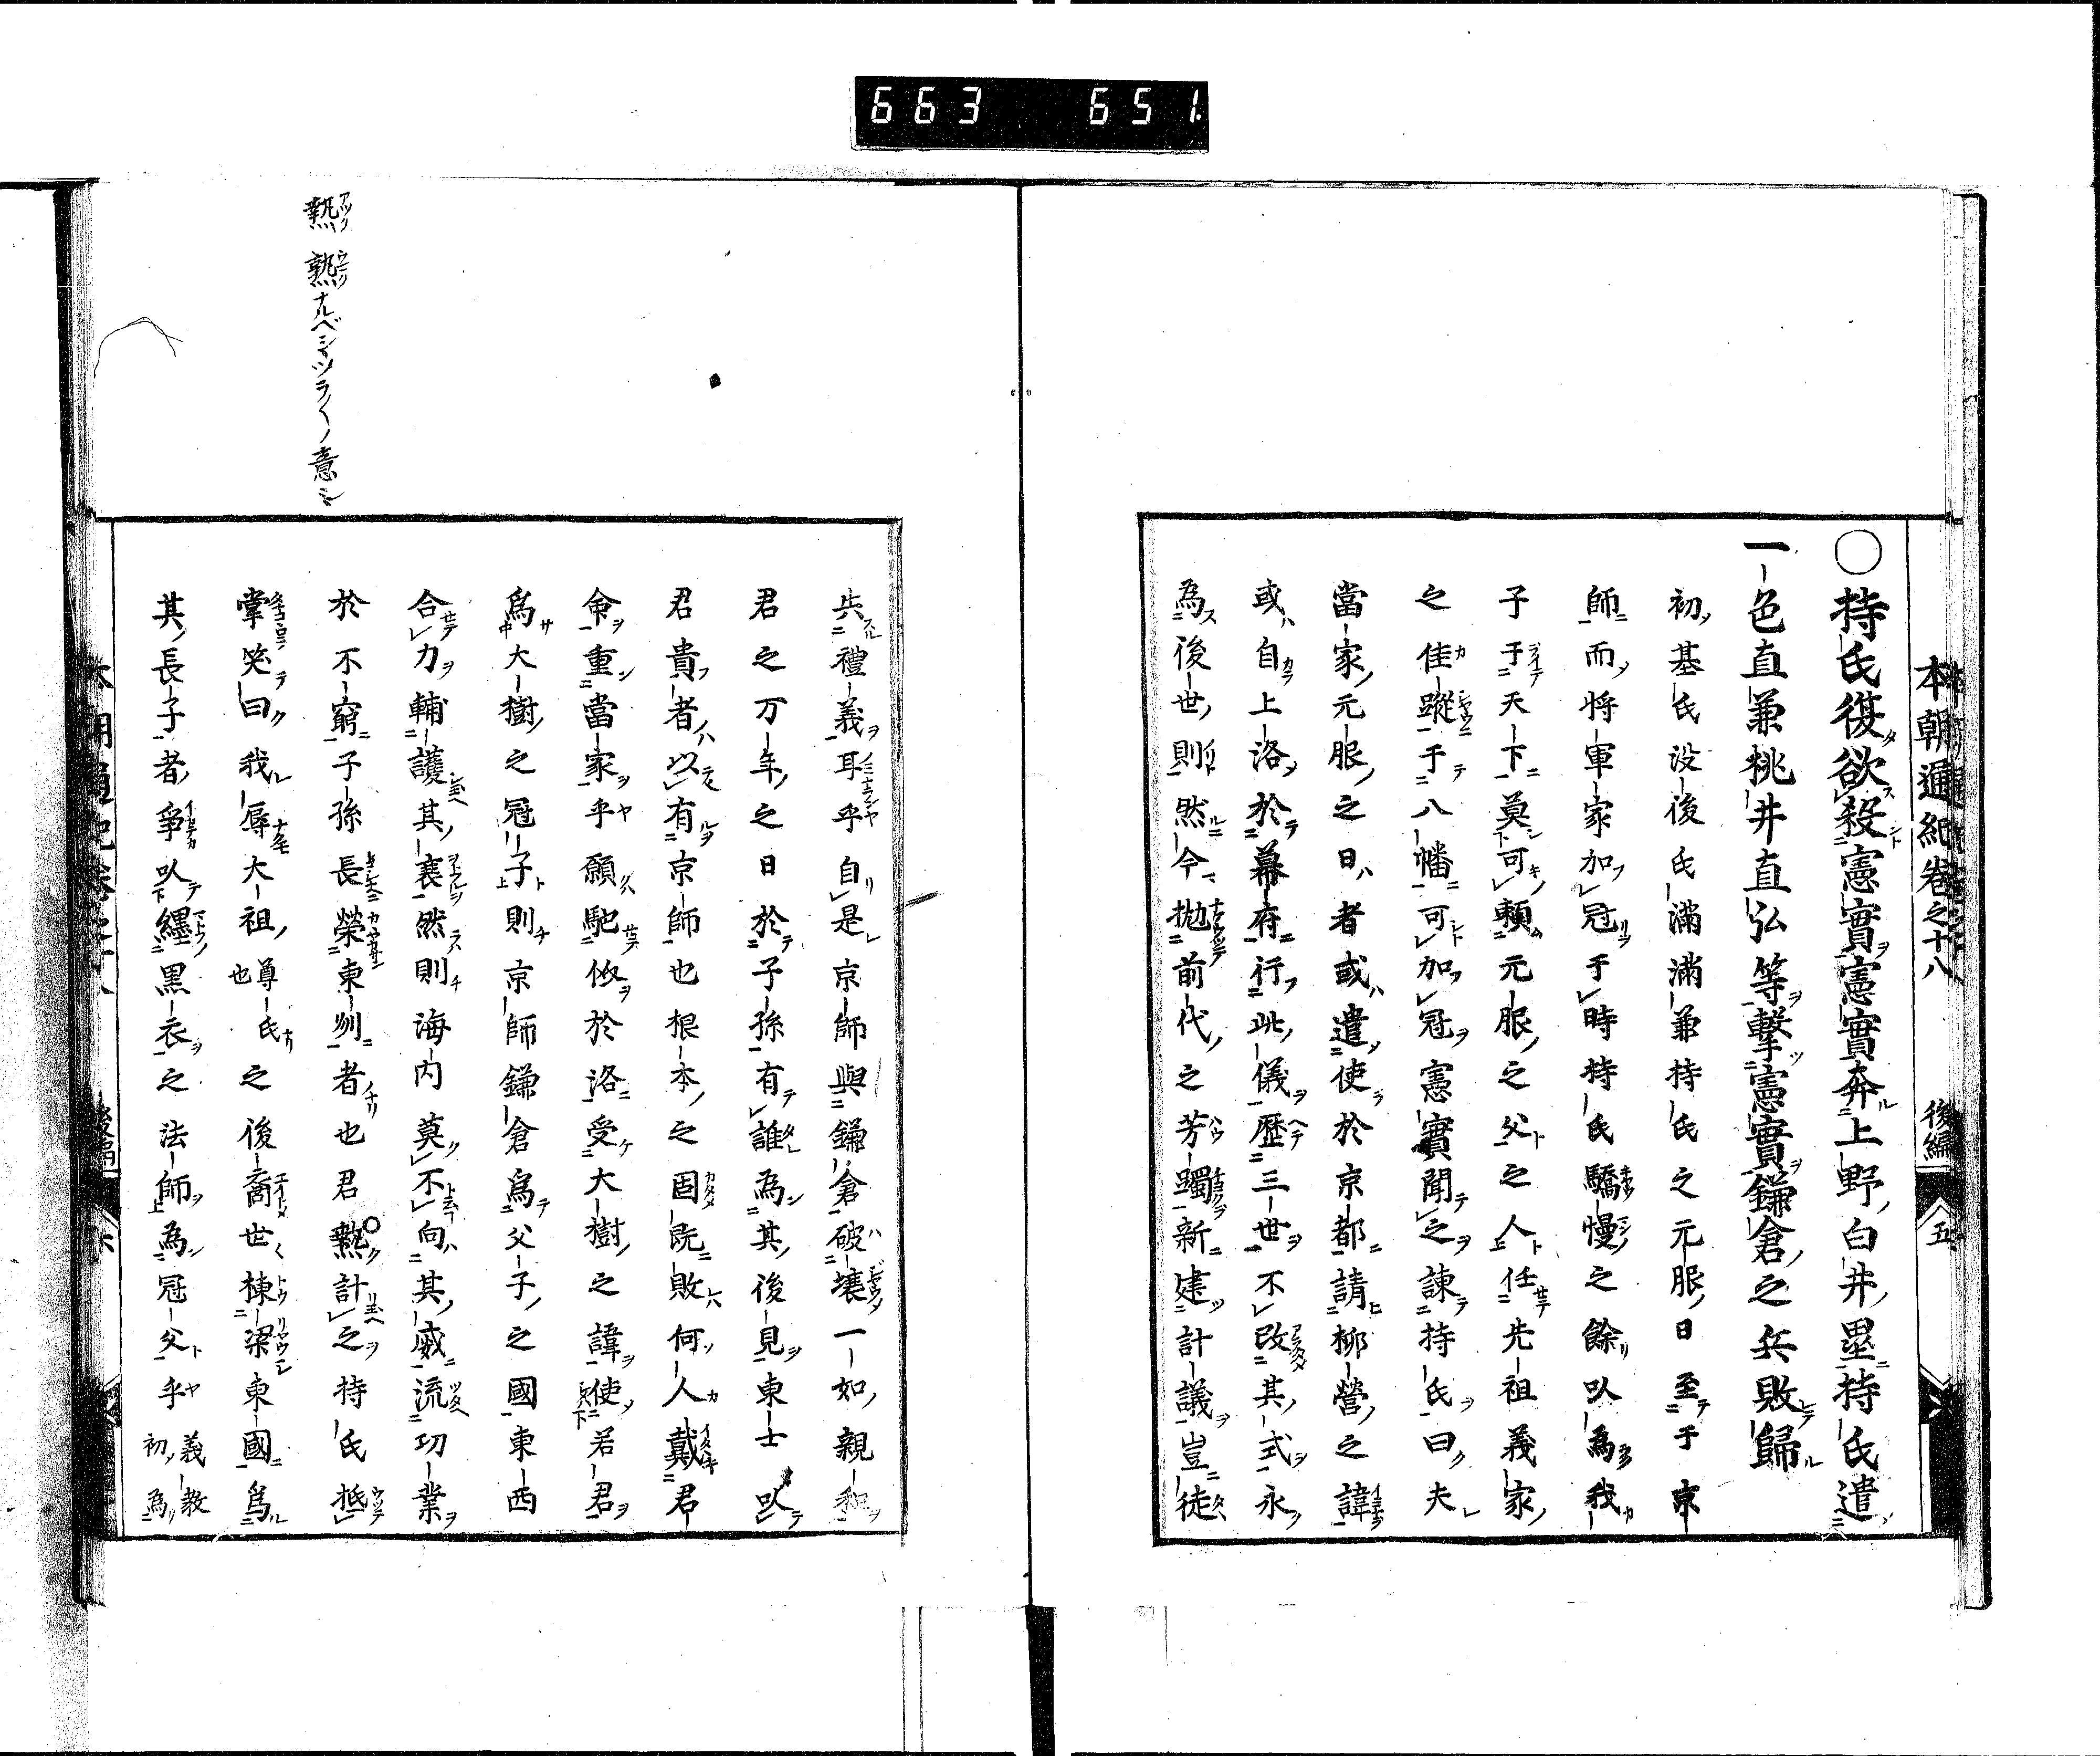 663 651
本朝通紀卷之十八 後編 五
○持氏復欲殺憲實憲實奔上野白井壘持氏遣
一色直兼桃井直弘等擊憲實鎌倉之兵敗歸
初基氏没後氏滿滿兼持氏之元服日至于京
師而將軍家加冠于時持氏驕慢之餘以為我
子于天下莫可賴元服之父之人任先祖義家
之佳蹤于八幡可加冠憲實聞之諫持氏曰夫
當家元服之日者或遣使於京都請柳營之諱
或自上洛於幕府行此儀歷三世不改其式永
為後世則然今抛前代之芳躅新建計議豈徒
失禮義耳乎自是京師與鎌倉破壞一如親和
君之万年之日於子孫有誰為其後見東士以
君貴者以有京師也根本之固既敗何人戴君
命重當家乎願馳伻於洛受大樹之諱使若君
為大樹之冠子則京師鎌倉為父子之國東西
合力輔護其衰然則海内莫不向其威流功業
於不窮子孫長榮東州者也君熱計之持氏抵
掌笑曰我辱大祖尊氏也之後裔世棟梁東國為
其長子者爭以纒黒衣之法師為冠父乎義教初為
熱 熟ナルベシツラ〱ノ意ミ